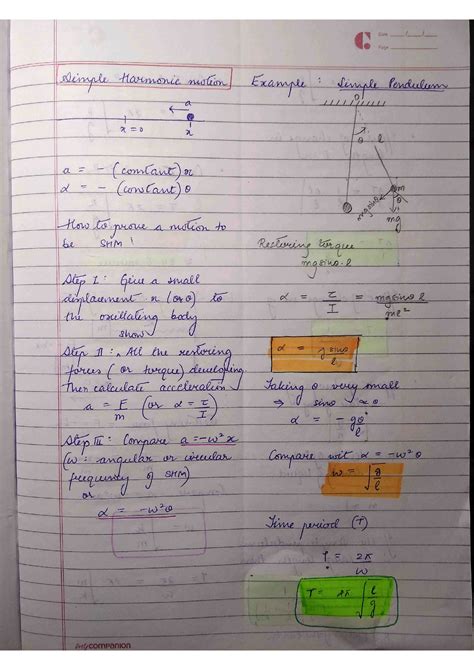 Date
Page
Simple Harmonic motion
a
x=0
x
a = - (constant) x
α = - (constant) θ
How to prove a motion to
be SHM!
Step I: Give a small
displacement x (or θ) to
the oscillating body
show
Step II: All the restoring
forces (or torque) developing
then calculate acceleration
a = F/m (or α = τ/I)
Step III: Compare a=-ω²x
(ω: angular or circular
frequency of SHM)
or
α = -ω²θ
Example: Simple Pendulum
θ
l
m
mgsinθ
θ
mg
Restoring torque
mgsinθ·l
α = τ/I = mgsinθ l/ml²
α = gsinθ/l
Taking θ very small
⇒ sinθ ≈ θ
α = -gθ/l
Compare wit α = -ω²θ
ω = √g/l
Time period (T)
T = 2π/ω
T = 2π √l/g
companion